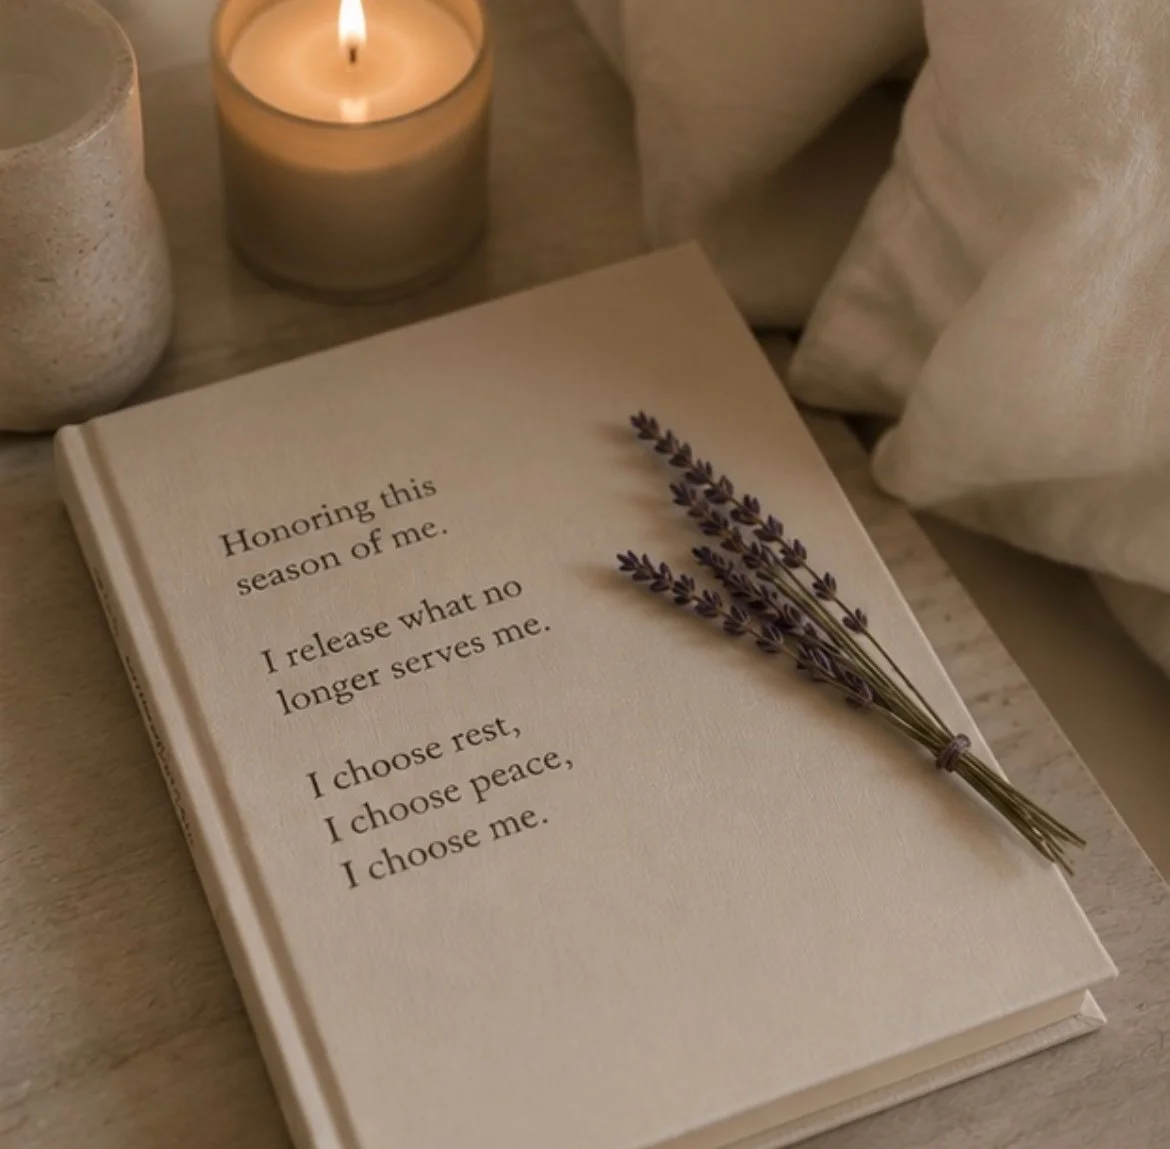 Honoring this
season of me.
I release what no
longer serves me.
I choose rest,
I choose peace,
I choose me.